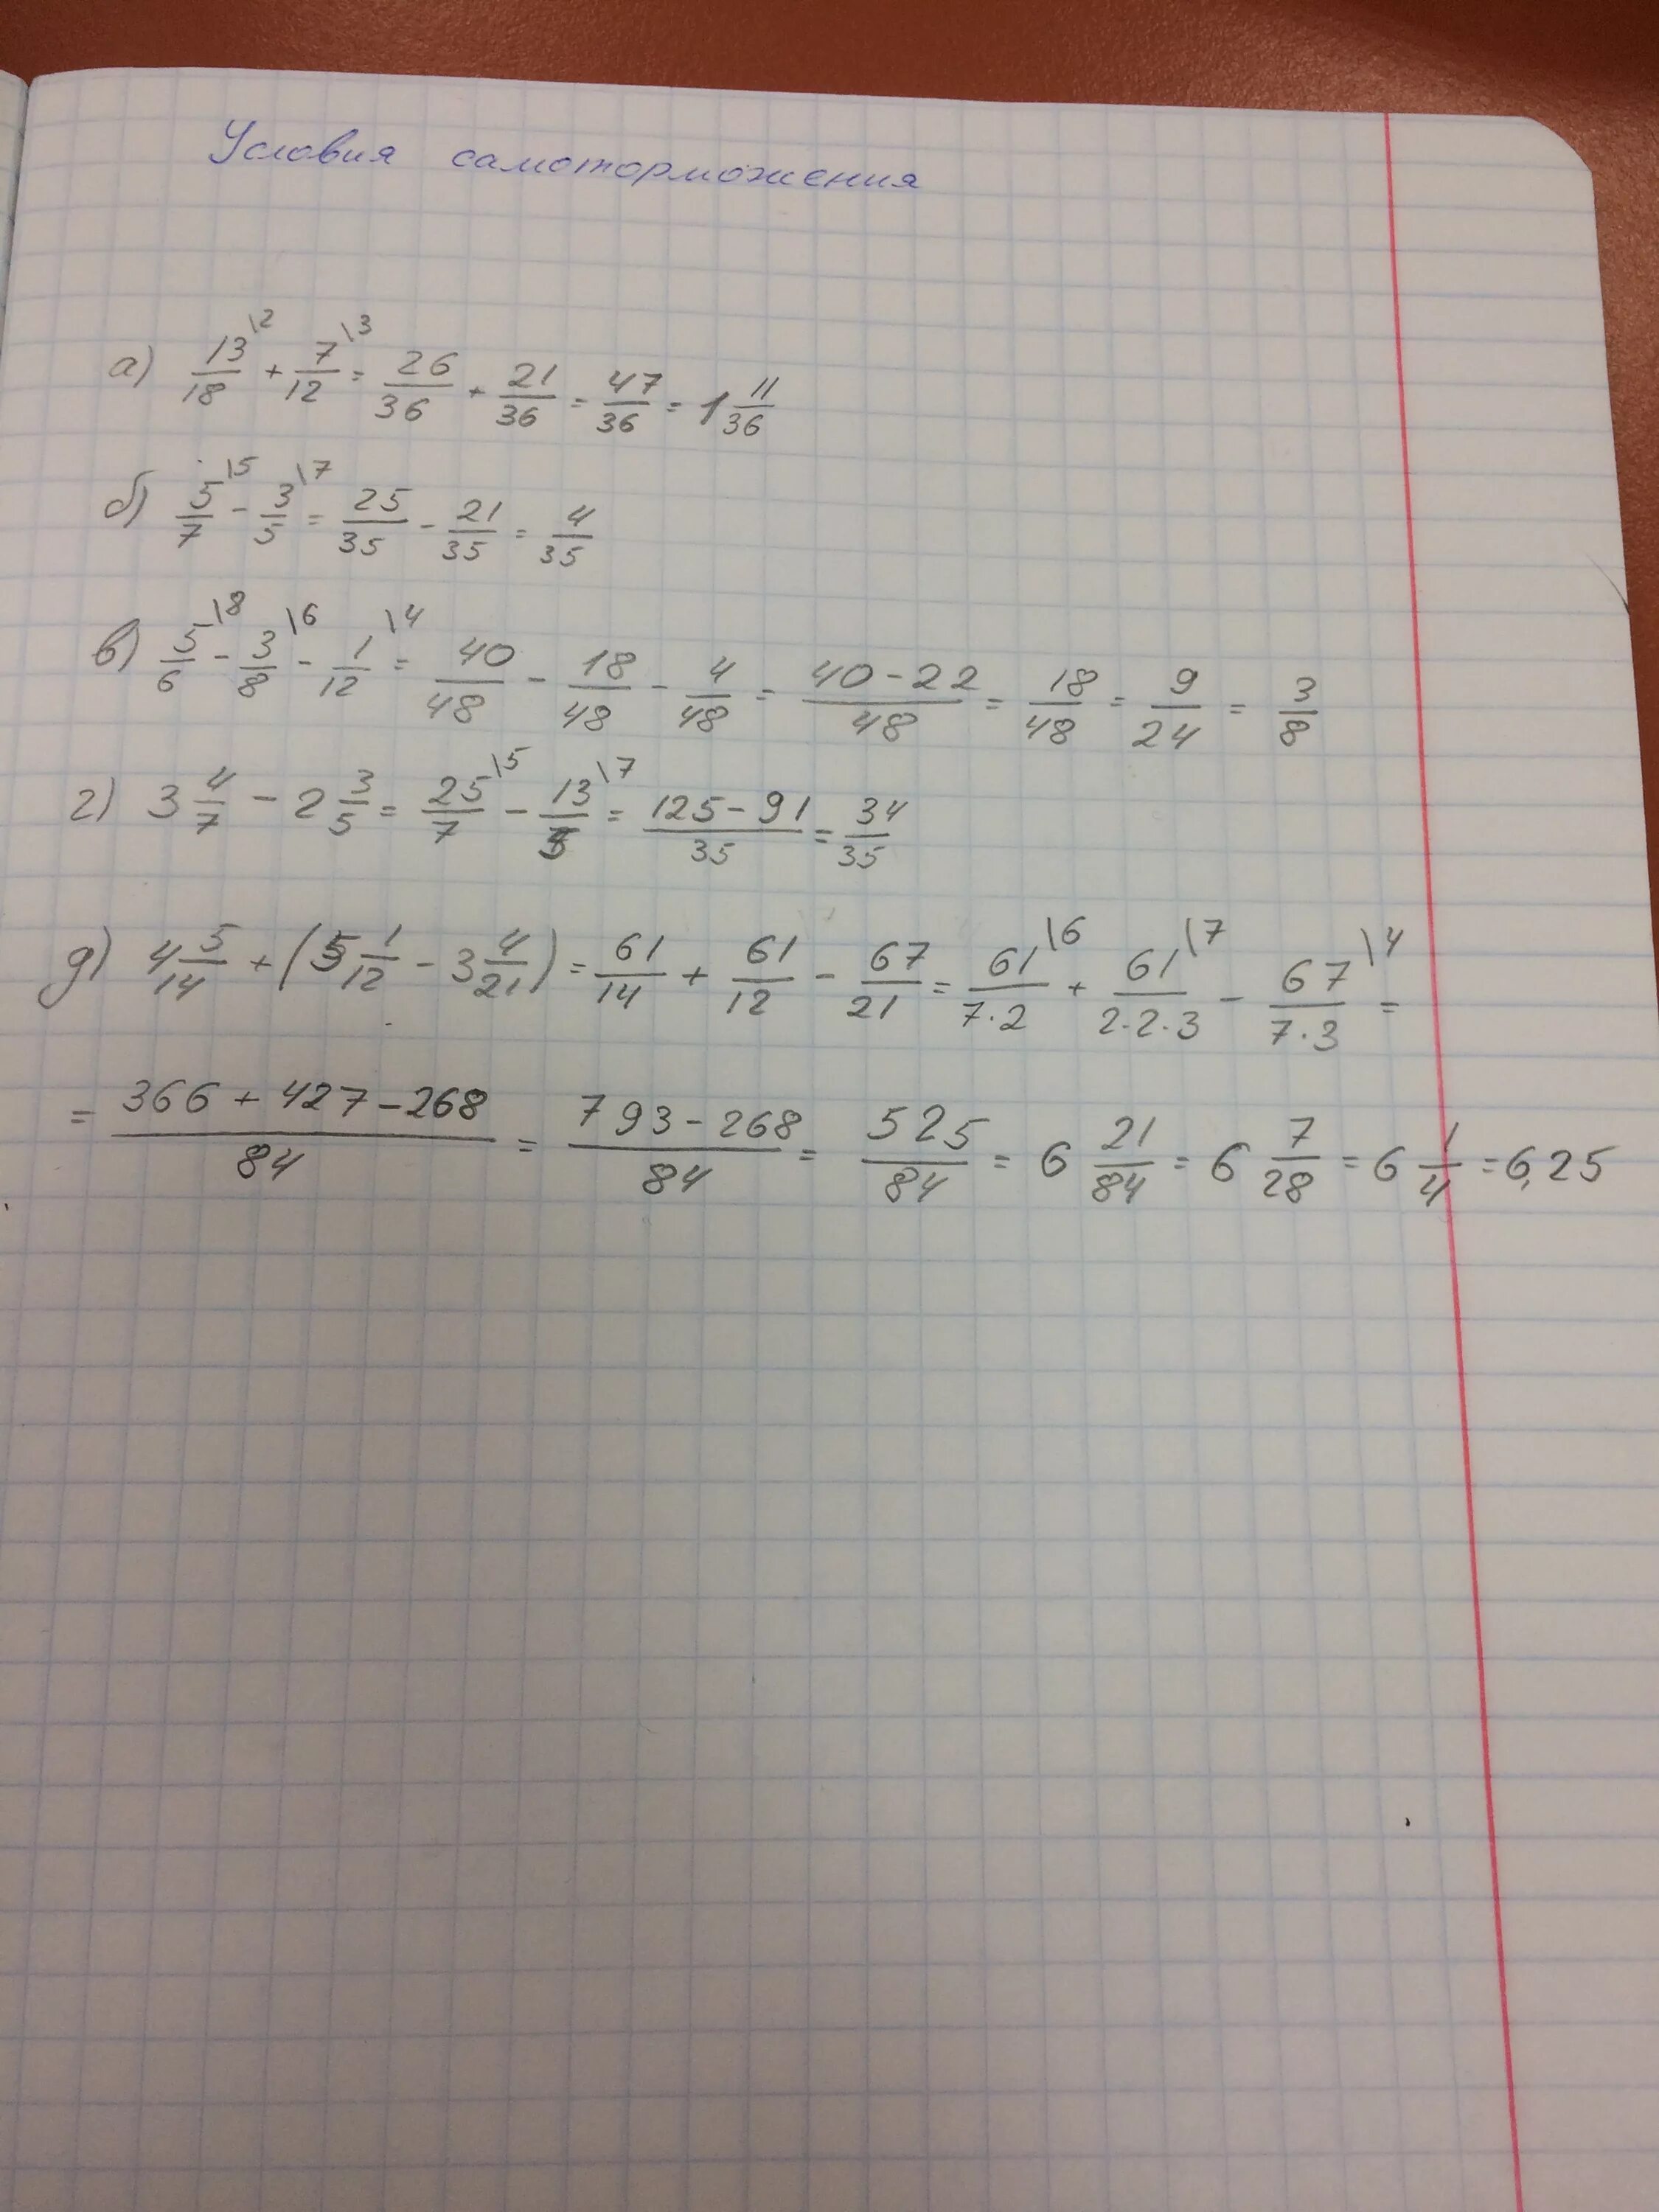 Условия самоторможения
а) 13/18 \2 + 7/12 \3 = 26/36 + 21/36 = 47/36 = 1 11/36
б) 5/7 \5 - 3/5 \7 = 25/35 - 21/35 = 4/35
в) 5/6 \8 - 3/8 \6 - 1/12 \4 = 40/48 - 18/48 - 4/48 = 40-22/48 = 18/48 = 9/24 = 3/8
г) 3 4/7 - 2 3/5 = 25/7 \5 - 13/5 \7 = 125-91/35 = 34/35
д) 4 5/14 + (5 1/12 - 3 4/21) = 61/14 + 61/12 - 67/21 = 61/7·2 \6 + 61/2·2·3 \7 - 67/7·3 \4 =
= 366+427-268/84 = 793-268/84 = 525/84 = 6 21/84 = 6 7/28 = 6 1/4 = 6,25